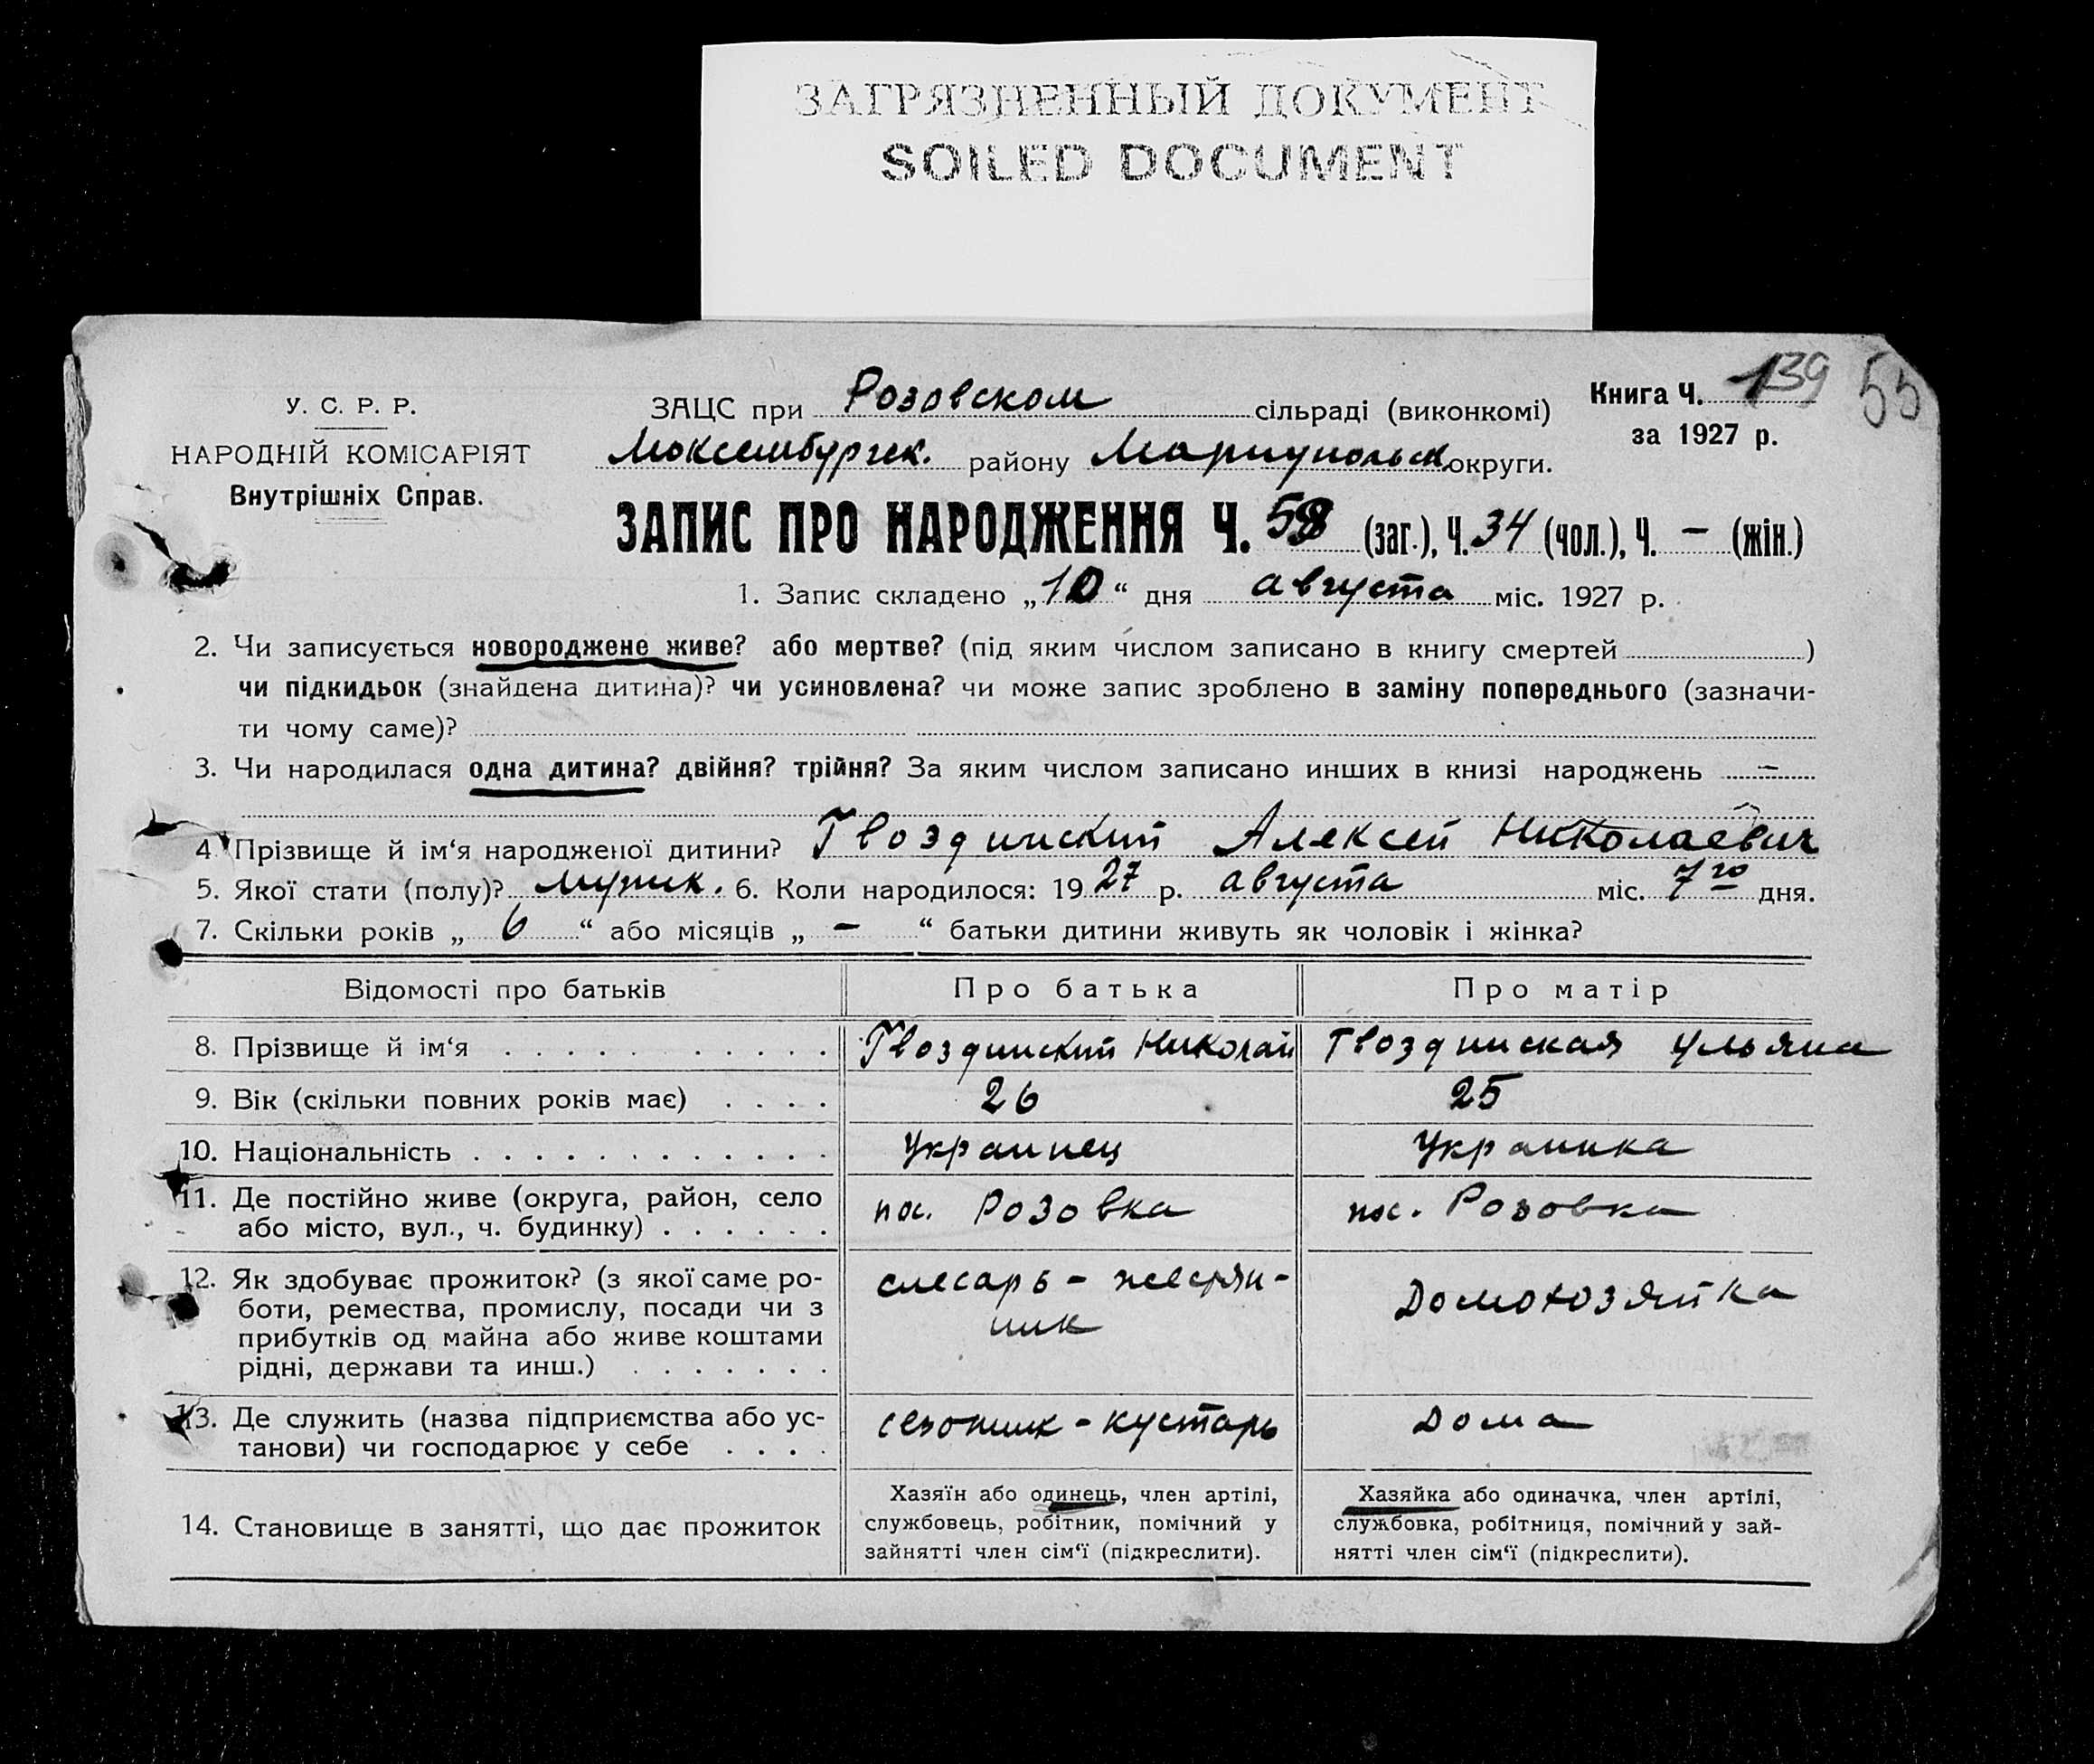 ЗАГРЯЗНЕННЫЙ ДОКУМЕНТ
SOILED DOCUMENT
Книга Ч. 139 55
за 1927 р.
У. С. Р. Р.
НАРОДНІЙ КОМІСАРІЯТ
Внутрішніх Справ.
ЗАЦС при Розовском сільраді (виконкомі)
району Мариупольск округи.
ЗАПИС ПРО НАРОДЖЕННЯ Ч. 58 (заг.), Ч. 34 (чол.), Ч. – (жін.)
1. Запис складено „10“ дня августа міс. 1927 р.
2. Чи записується новороджене живе? або мертве? (під яким числом записано в книгу смертей )
чи підкидьок (знайдена дитина)? чи усиновлена? чи може запис зроблено в заміну попереднього (зазначи-
ти чому саме)?
3. Чи народилася одна дитина? двійня? трійня? За яким числом записано инших в книзі народжень –
4 Прізвище й ім‘я народженої дитини? Гвоздинский Алексей Николаевич
5. Якої стати (полу)? мужик. 6. Коли народилося: 1927 р. августа міс. 7го дня.
7. Скільки років „ 6 “ або місяців „ – “ батьки дитини живуть як чоловік і жінка?
Відомості про батьків Про батька Про матір
8. Прізвище й ім‘я Гвоздинский Николай Гвоздинская Ульяна
9. Вік (скільки повних років має) 26 25
10. Національність Украинец Украинка
11. Де постійно живе (округа, район, село
або місто, вул., ч. будинку)
пос. Розовка пос. Розовка
12. Як здобуває прожиток? (з якої саме ро-
боти, ремества, промислу, посади чи з
прибутків од майна або живе коштами
рідні, держави та инш.)
слесарь - жестян-
ник
Домохозяйка
13. Де служить (назва підприємства або ус-
танови) чи господарює у себе
сезонник - кустарь
Дома
14. Становище в занятті, що дає прожиток
Хазяїн або одинець, член артілі,
службовець, робітник, помічний у
зайнятті член сім‘ї (підкреслити).
Хазяйка або одиначка, член артілі,
службовка, робітниця, помічний у зай-
нятті член сім‘ї (підкреслити).